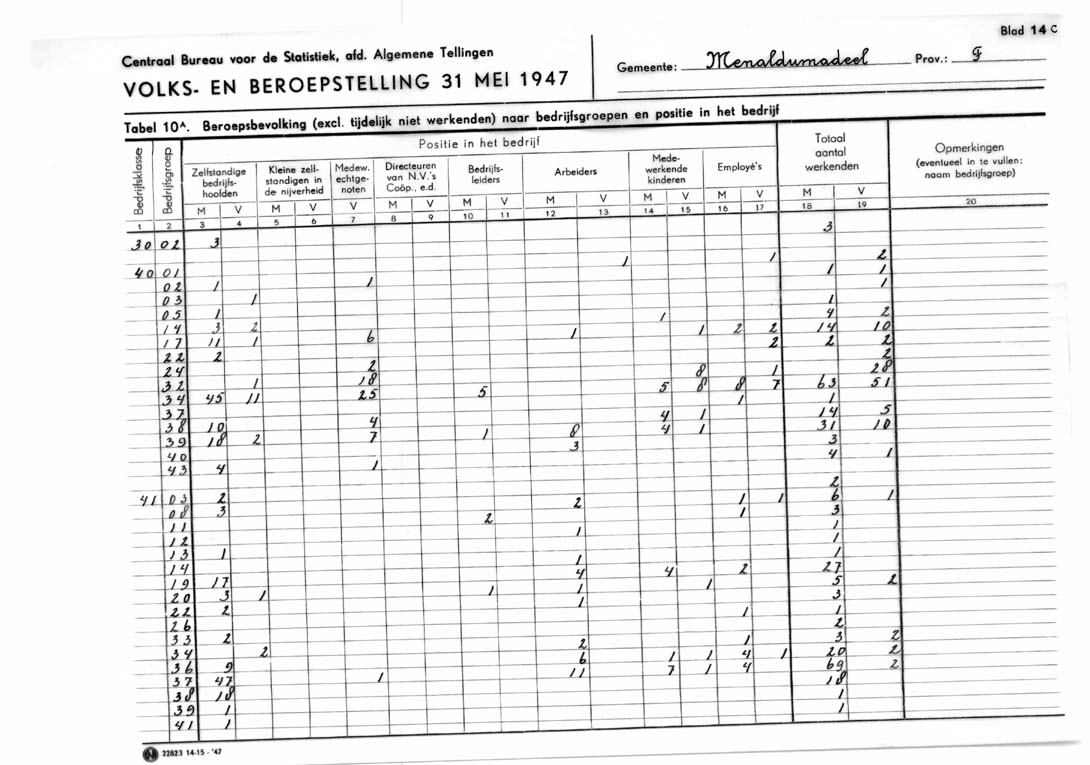 Blad 14 C
Centraal Bureau voor de Statistiek, afd. Algemene Tellingen
VOLKS- EN BEROEPSTELLING 31 MEI 1947
Gemeente: Menaldumadeel Prov.: F
Tabel 10A. Beroepsbevolking (excl. tijdelijk niet werkenden) naar bedrijfsgroepen en positie in het bedrijf
Bedrijfsklasse
Bedrijfsgroep
Positie in het bedrijf
Zelfstandige
bedrijfs-
hoofden
Kleine zelf-
standigen in
de nijverheid
Medew.
echtge-
noten
Directeuren
van N.V.'s
Coöp., e.d.
Bedrijfs-
leiders
Arbeiders
Mede-
werkende
kinderen
Employé's
Totaal
aantal
werkenden
Opmerkingen
(eventueel in te vullen:
naam bedrijfsgroep)
M V M V V M V M V M V M V M V M V
1 2 3 4 5 6 7 8 9 10 11 12 13 14 15 16 17 18 19 20
30 02 3 3
40 01 1 1 2
02 1 1 1 1
03 1 1
05 1 1
14 3 2 1 4 2
17 11 1 6 1 1 2 2 14 10
22 2 2 2 2
24 2 2
32 1 18 8 1 28
34 45 11 25 5 5 8 8 7 63 51
37 1 1
38 10 4 4 1 14 5
39 18 2 7 1 8 4 1 31 10
40 3 3
43 4 1 4 1
41 03 2 2
08 3 2 1 1 6 1
11 2 1 3
12 1 1
13 1 1
14 1 1
19 17 4 4 2 27
20 3 1 1 1 1 5 2
22 2 1 3
26 1 1
33 2 2
34 2 2 1 3 2
36 9 6 1 1 4 1 20 2
37 47 1 11 7 1 4 69 2
38 18 18
39 1 1
41 1 1
22823 14-15-'47